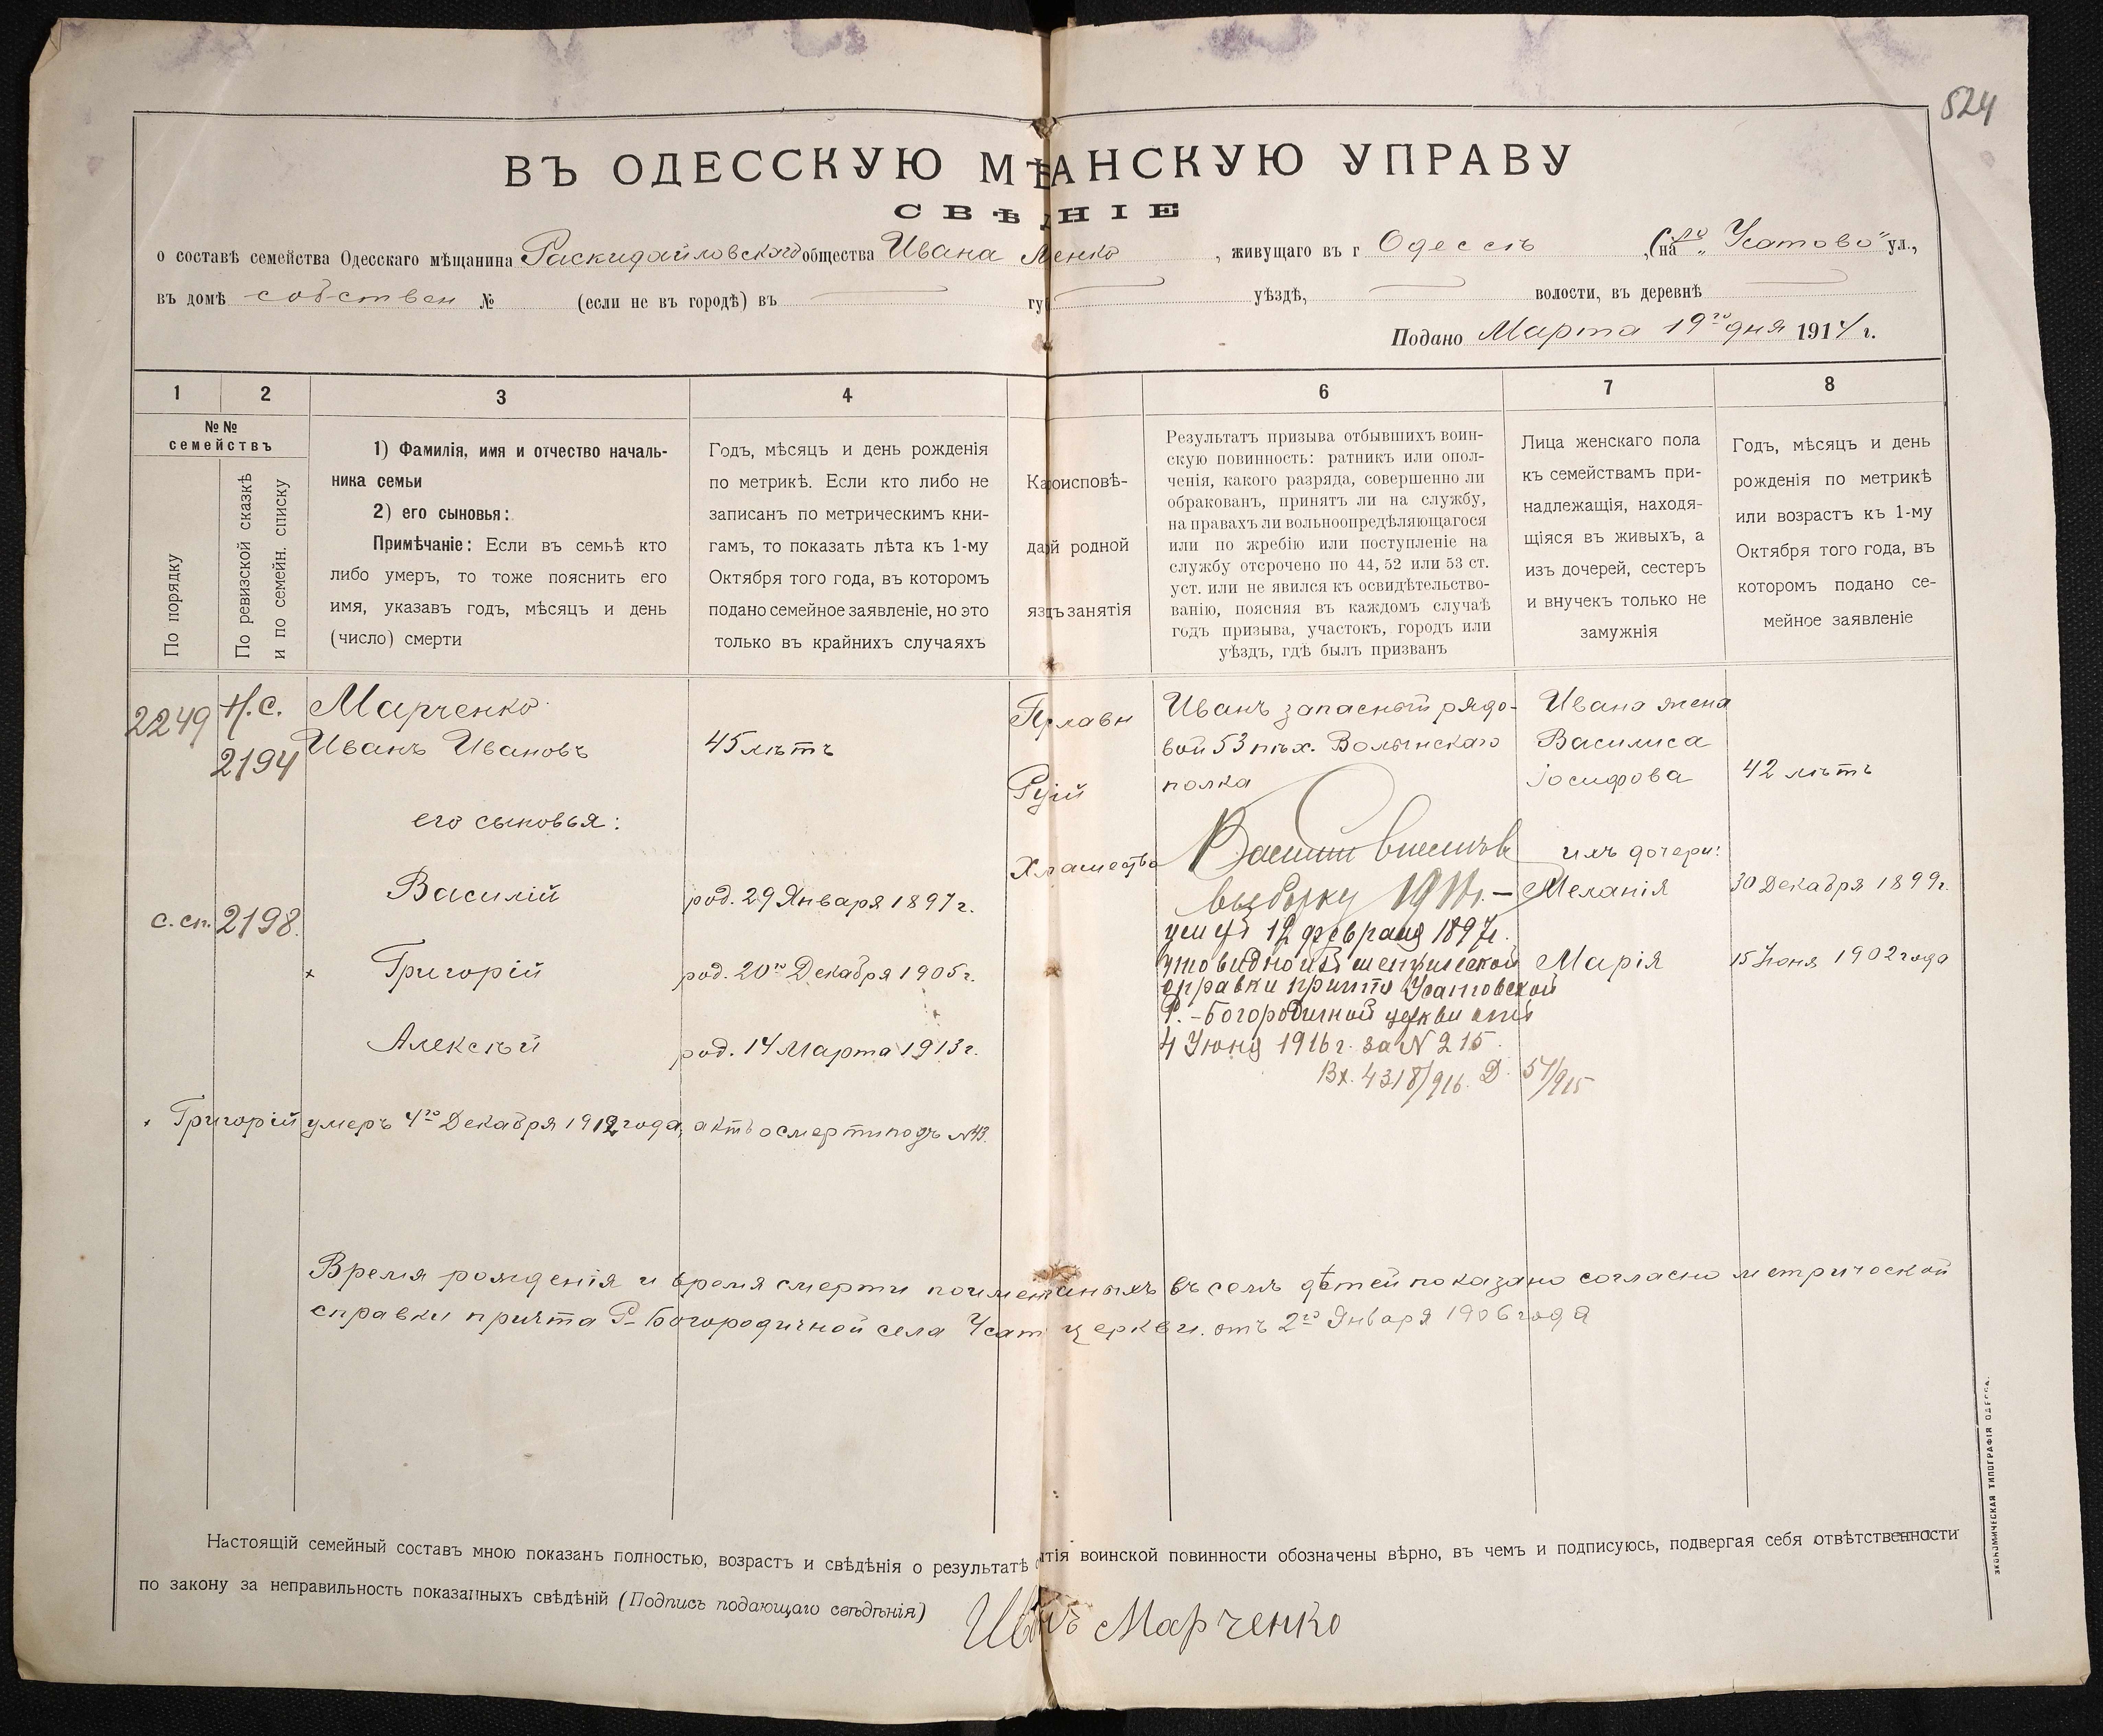 524
ВЪ ОДЕССКУЮ МѢ АНСКУЮ УПРАВУ
СВѢ НІЕ
о составѣ семейства Одесскаго мѣщанина Раскидайловскаго общества Ивана енко , живущаго въ г Одессѣ , (на „Усатово" ул.,
въ домѣ собствен № (если не въ городѣ) въ гу уѣздѣ, волости, въ деревнѣ
Подано Марта 19го дня 1914 г.
1 2 3 4 6 7 8
№№ семействъ
По порядку
По ревизской сказкѣ и по семейн. списку
1) Фамилія, имя и отчество началь-
ника семьи
2) его сыновья:
Примѣчаніе: Если въ семьѣ кто
либо умеръ, то тоже пояснить его
имя, указавъ годъ, мѣсяцъ и день
(число) смерти
Годъ, мѣсяцъ и день рожденія
по метрикѣ. Если кто либо не
записанъ по метрическимъ кни-
гамъ, то показать лѣта къ 1-му
Октября того года, въ которомъ
подано семейное заявленіе, но это
только въ крайнихъ случаяхъ
Ка оисповѣ-
да й родной
яз ъ занятія
Результатъ призыва отбывшихъ воин-
скую повинность: ратникъ или опол-
ченія, какого разряда, совершенно ли
обракованъ, принятъ ли на службу,
на правахъ ли вольноопредѣляющагося
или по жребію или поступленіе на
службу отсрочено по 44, 52 или 53 ст.
уст. или не явился къ освидѣтельство-
ванію, поясняя въ каждомъ случаѣ
годъ призыва, участокъ, городъ или
уѣздъ, гдѣ былъ призванъ
Лица женскаго пола
къ семействамъ при-
надлежащія, находя-
щіяся въ живыхъ, а
изъ дочерей, сестеръ
и внучекъ только не
замужнія
Годъ, мѣсяцъ и день
рожденія по метрикѣ
или возрастъ къ 1-му
Октября того года, въ
которомъ подано се-
мейное заявленіе
2249 Н.С. 2194
Марченко
Иванъ Ивановъ 45 лѣтъ
его сыновья:
Василій род. 29 Января 1897 г.
с.сп. 2198.
× Григорій род. 20го Декабря 1905 г.
Алексѣй род. 14 Марта 1913 г.
Иванъ запасный рядо-
вой 53 пѣх. Волынскаго
полка
12 февраля 1897 г.
что видно изъ метрической
справки причта Усатовской
Р.-Богородичной церкви отъ
4 Июня 1916 г. за N 215.
Вх. 4318/916. Д. 51/915
Ивана жена
Василиса
Іосифова 42 лѣтъ
ихъ дочери:
Меланія 30 Декабря 1899 г.
Марія 15 Іюня 1902 года
× Григорій умеръ 4го Декабря 1912 года, актъ о смерти подъ №43.
Время рожденія и время смерти поимен аныхъ въ семъ дѣтей показано согласно метрической
справки причта Р-Богородичной села Усат церкви. отъ 2го Января 1906 года
Настоящій семейный составъ мною показанъ полностью, возрастъ и свѣдѣнія о результатѣ тія воинской повинности обозначены вѣрно, въ чемъ и подписуюсь, подвергая себя отвѣтственности
по закону за неправильность показанныхъ свѣдѣній (Подпись подающаго свѣдѣнія) Иванъ Марченко
ЭКОНОМИЧЕСКАЯ ТИПОГРАФІЯ ОДЕССА.